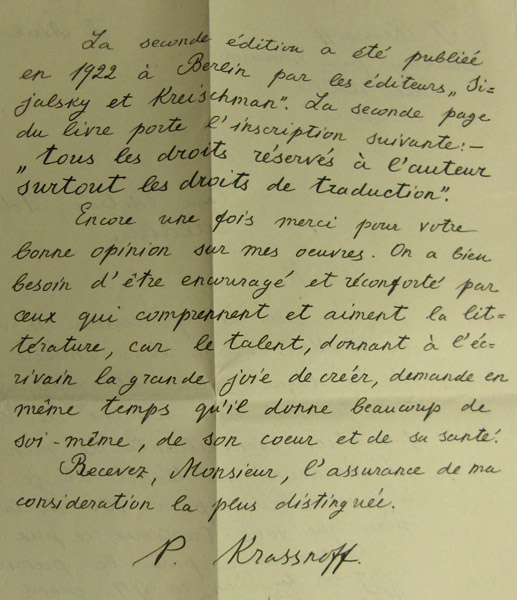 La seconde édition a été publiée
en 1922 à Berlin par les éditeurs „Si-
jalsky et Kreischman". La seconde page
du livre porte l'inscription suivante:—
„tous les droits réservés à l'auteur
surtout les droits de traduction".
Encore une fois merci pour votre
bonne opinion sur mes oeuvres. On a bien
besoin d'être encouragé et réconforté par
ceux qui comprennent et aiment la lit-
térature, car le talent, donnant à l'éc-
rivain la grande joie de créer, demande en
même temps qu'il donne beaucoup de
soi-même, de son coeur et de sa santé.
Recevez, Monsieur, l'assurance de ma
consideration la plus distinguée.
P. Krassnoff.